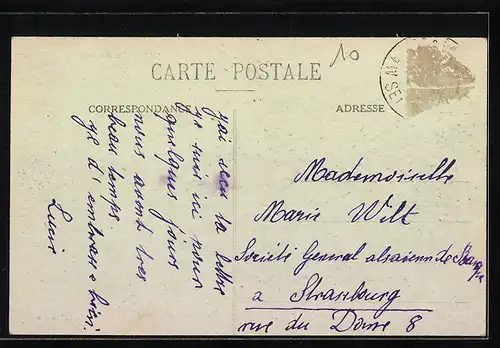 10
CARTE POSTALE
CORRESPONDANCE
ADRESSE
ES MA
J'ai reçu ta lettre
je suis ici pour
quelques jours
nous avont tres
beau temps.
je t'embrasse bien.
Lucie
Mademoiselle
Marie Wilt
Societé General alsacienne de Banque
a Strasbourg
rue du Dome 8